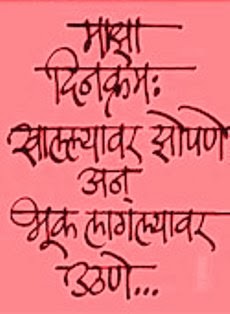 माझा
दिनक्रम:
खाल्ल्यावर झोपणे
अन्
भूक लागल्यावर
उठणे...